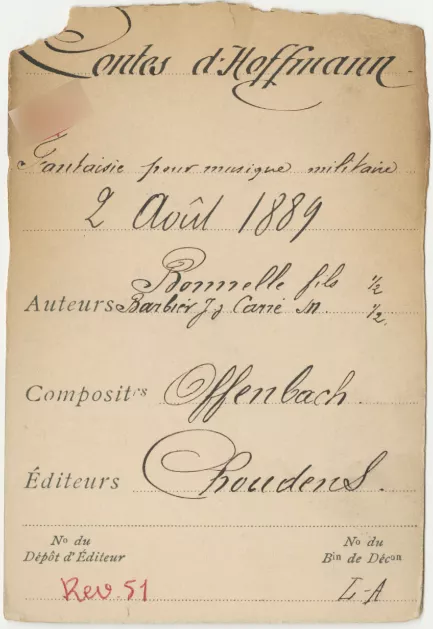 Contes d'Hoffmann
Fantaisie pour musique militaire
2 Août 1889
Bonnelle fils 1/2
Auteurs Barbier J & Carré M 1/2
Composit.rs Offenbach
Éditeurs Choudens.
No du No du
Dépôt d'Éditeur Bin de Décon
Rev. 51 L-A